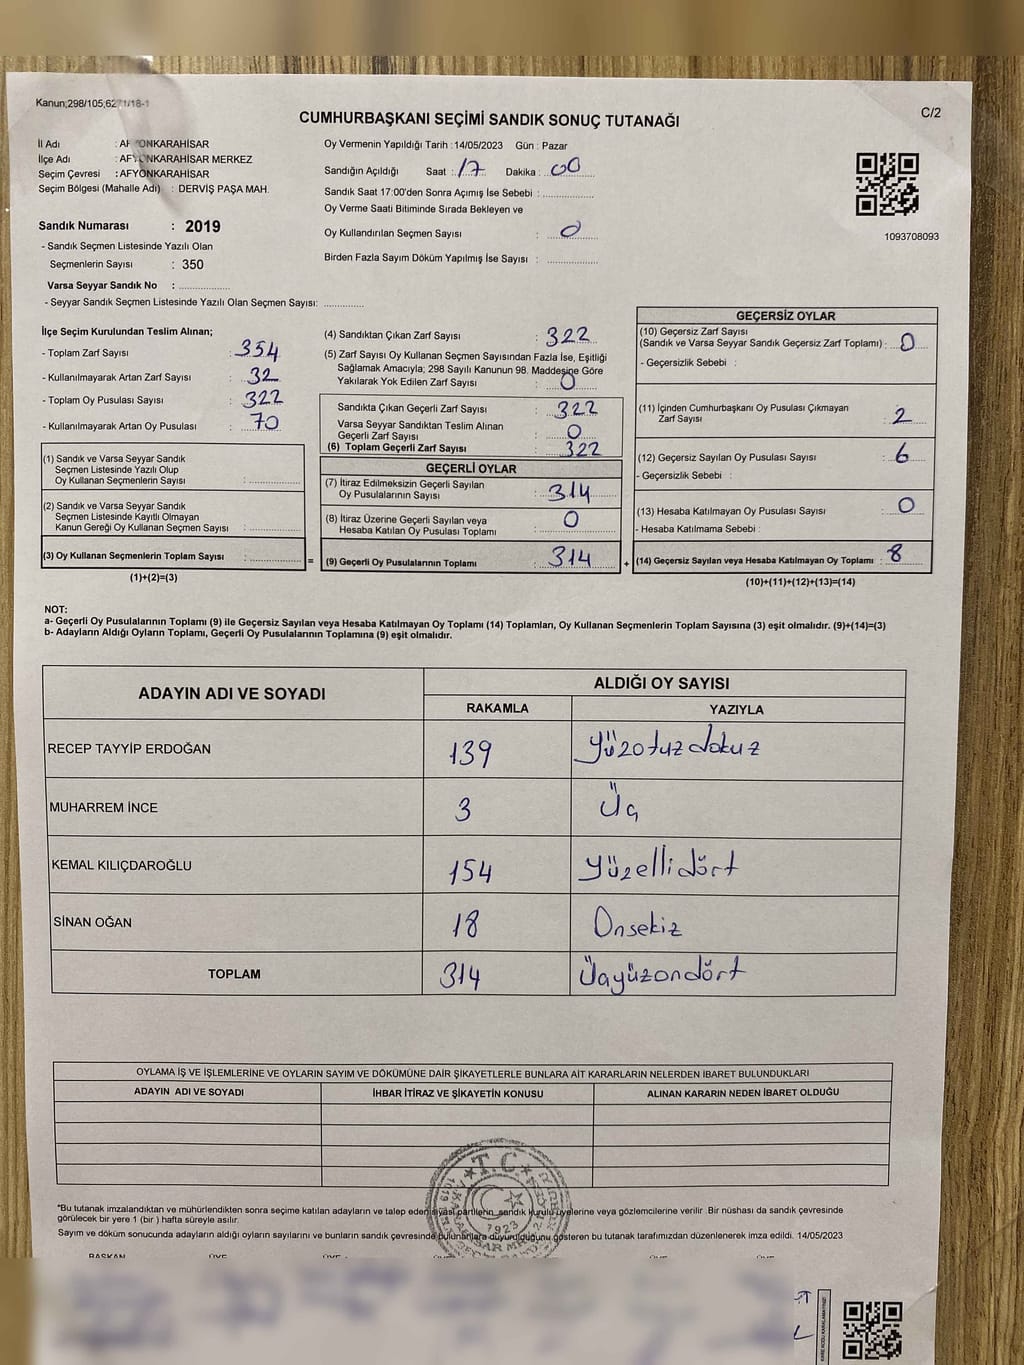 Kanun;298/105;6271/18-1
C/2
CUMHURBAŞKANI SEÇİMİ SANDIK SONUÇ TUTANAĞI
İl Adı : AFYONKARAHİSAR
İlçe Adı : AFYONKARAHİSAR MERKEZ
Seçim Çevresi : AFYONKARAHİSAR
Seçim Bölgesi (Mahalle Adı) : DERVİŞ PAŞA MAH.
Sandık Numarası : 2019
- Sandık Seçmen Listesinde Yazılı Olan
Seçmenlerin Sayısı : 350
Varsa Seyyar Sandık No : ....................
- Seyyar Sandık Seçmen Listesinde Yazılı Olan Seçmen Sayısı: ................
Oy Vermenin Yapıldığı Tarih :14/05/2023 Gün : Pazar
Sandığın Açıldığı Saat : 17 Dakika : 00
Sandık Saat 17:00'den Sonra Açımış İse Sebebi : ................
Oy Verme Saati Bitiminde Sırada Bekleyen ve
Oy Kullandırılan Seçmen Sayısı : 0
Birden Fazla Sayım Döküm Yapılmış İse Sayısı : ................
1093708093
İlçe Seçim Kurulundan Teslim Alınan;
- Toplam Zarf Sayısı : 354
- Kullanılmayarak Artan Zarf Sayısı : 32
- Toplam Oy Pusulası Sayısı : 322
- Kullanılmayarak Artan Oy Pusulası : 70
(1) Sandık ve Varsa Seyyar Sandık
Seçmen Listesinde Yazılı Olup
Oy Kullanan Seçmenlerin Sayısı : ................
(2) Sandık ve Varsa Seyyar Sandık
Seçmen Listesinde Kayıtlı Olmayan
Kanun Gereği Oy Kullanan Seçmen Sayısı : ................
(3) Oy Kullanan Seçmenlerin Toplam Sayısı : ................ =
(1)+(2)=(3)
(4) Sandıktan Çıkan Zarf Sayısı : 322
(5) Zarf Sayısı Oy Kullanan Seçmen Sayısından Fazla İse, Eşitliği
Sağlamak Amacıyla; 298 Sayılı Kanunun 98. Maddesine Göre
Yakılarak Yok Edilen Zarf Sayısı : 0
Sandıkta Çıkan Geçerli Zarf Sayısı : 322
Varsa Seyyar Sandıktan Teslim Alınan
Geçerli Zarf Sayısı : 0
(6) Toplam Geçerli Zarf Sayısı : 322
GEÇERLİ OYLAR
(7) İtiraz Edilmeksizin Geçerli Sayılan
Oy Pusulalarının Sayısı : 314
(8) İtiraz Üzerine Geçerli Sayılan veya
Hesaba Katılan Oy Pusulası Toplamı : 0
(9) Geçerli Oy Pusulalarının Toplamı : 314 +
GEÇERSİZ OYLAR
(10) Geçersiz Zarf Sayısı
(Sandık ve Varsa Seyyar Sandık Geçersiz Zarf Toplamı) : 0
- Geçersizlik Sebebi :
(11) İçinden Cumhurbaşkanı Oy Pusulası Çıkmayan
Zarf Sayısı : 2
(12) Geçersiz Sayılan Oy Pusulası Sayısı : 6
- Geçersizlik Sebebi :
(13) Hesaba Katılmayan Oy Pusulası Sayısı : 0
- Hesaba Katılmama Sebebi :
(14) Geçersiz Sayılan veya Hesaba Katılmayan Oy Toplamı : 8
(10)+(11)+(12)+(13)=(14)
NOT:
a- Geçerli Oy Pusulalarının Toplamı (9) ile Geçersiz Sayılan veya Hesaba Katılmayan Oy Toplamı (14) Toplamları, Oy Kullanan Seçmenlerin Toplam Sayısına (3) eşit olmalıdır. (9)+(14)=(3)
b- Adayların Aldığı Oyların Toplamı, Geçerli Oy Pusulalarının Toplamına (9) eşit olmalıdır.
ADAYIN ADI VE SOYADI ALDIĞI OY SAYISI
RAKAMLA YAZIYLA
RECEP TAYYİP ERDOĞAN 139 Yüzotuzdokuz
MUHARREM İNCE 3 Üç
KEMAL KILIÇDAROĞLU 154 Yüzellidört
SİNAN OĞAN 18 Onsekiz
TOPLAM 314 Üçyüzondört
OYLAMA İŞ VE İŞLEMLERİNE VE OYLARIN SAYIM VE DÖKÜMÜNE DAİR ŞİKAYETLERLE BUNLARA AİT KARARLARIN NELERDEN İBARET BULUNDUKLARI
ADAYIN ADI VE SOYADI İHBAR İTİRAZ VE ŞİKAYETİN KONUSU ALINAN KARARIN NEDEN İBARET OLDUĞU
T.C.
1923
*Bu tutanak imzalandıktan ve mühürlendikten sonra seçime katılan adayların ve talep eden siyasi partilerin sandık kurulu üyelerine veya gözlemcilerine verilir .Bir nüshası da sandık çevresinde
görülecek bir yere 1 (bir ) hafta süreyle asılır.
Sayım ve döküm sonucunda adayların aldığı oyların sayılarını ve bunların sandık çevresinde bulunanlara duyurulduğunu gösteren bu tutanak tarafımızdan düzenlenerek imza edildi. 14/05/2023
BAŞKAN ÜYE ÜYE